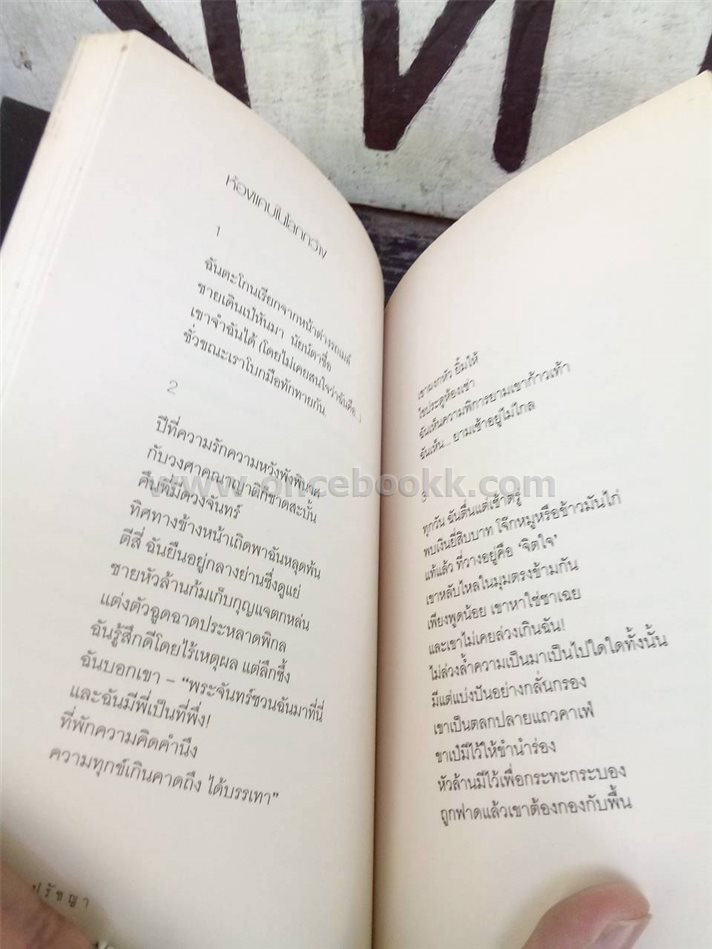 ห้องแคบในโลกกว้าง
1
ฉันตะโกนเรียกจากหน้าต่างรถเมล์
ชายเดินเป๋หันมา นัยน์ตาซื่อ
เขาจำฉันได้ (โดยไม่เคยสนใจว่าฉันคือ..)
ชั่วขณะเราโบกมือทักทายกัน
2
ปีที่ความรักความหวังพังพินาศ
กับวงศาคณาญาติก็ขาดสะบั้น
คืนที่มีดวงจันทร์
ทิศทางข้างหน้าเถิดพาฉันหลุดพ้น
ตีสี่ ฉันยืนอยู่กลางย่านซึ่งดูแย่
ชายหัวล้านก้มเก็บกุญแจตกหล่น
แต่งตัวฉูดฉาดประหลาดพิกล
ฉันรู้สึกดีโดยไร้เหตุผล แต่ลึกซึ้ง
ฉันบอกเขา – “พระจันทร์ชวนฉันมาที่นี่
และฉันมีพี่เป็นที่พึ่ง!
ที่พักความคิดคำนึง
ความทุกข์เกินคาดถึง ได้บรรเทา”
ปรัชญา
เขาผงกหัว ยิ้มให้
ไขประตูห้องเช่า
ฉันเห็นความพิการยามเขาก้าวเท้า
ฉันเห็น... ยามเช้าอยู่ไม่ไกล
3
ทุกวัน ฉันตื่นแต่เช้าตรู่
พบเงินยี่สิบบาท โจ๊กหมูหรือข้าวมันไก่
แท้แล้ว ที่วางอยู่คือ ‘จิตใจ’
เขาหลับไหลในมุมตรงข้ามกัน
เพียงพูดน้อย เขาหาใช่ชาเฉย
และเขาไม่เคยล่วงเกินฉัน!
ไม่ล่วงล้ำความเป็นมาเป็นไปใดใดทั้งนั้น
มีแต่แบ่งปันอย่างกลั่นกรอง
เขาเป็นตลกปลายแถวคาเฟ่
ขาเป๋มีไว้ให้ขำนำร่อง
หัวล้านมีไว้เพื่อกระทะกระบอง
ถูกฟาดแล้วเขาต้องกองกับพื้น
www.oncebookk.com